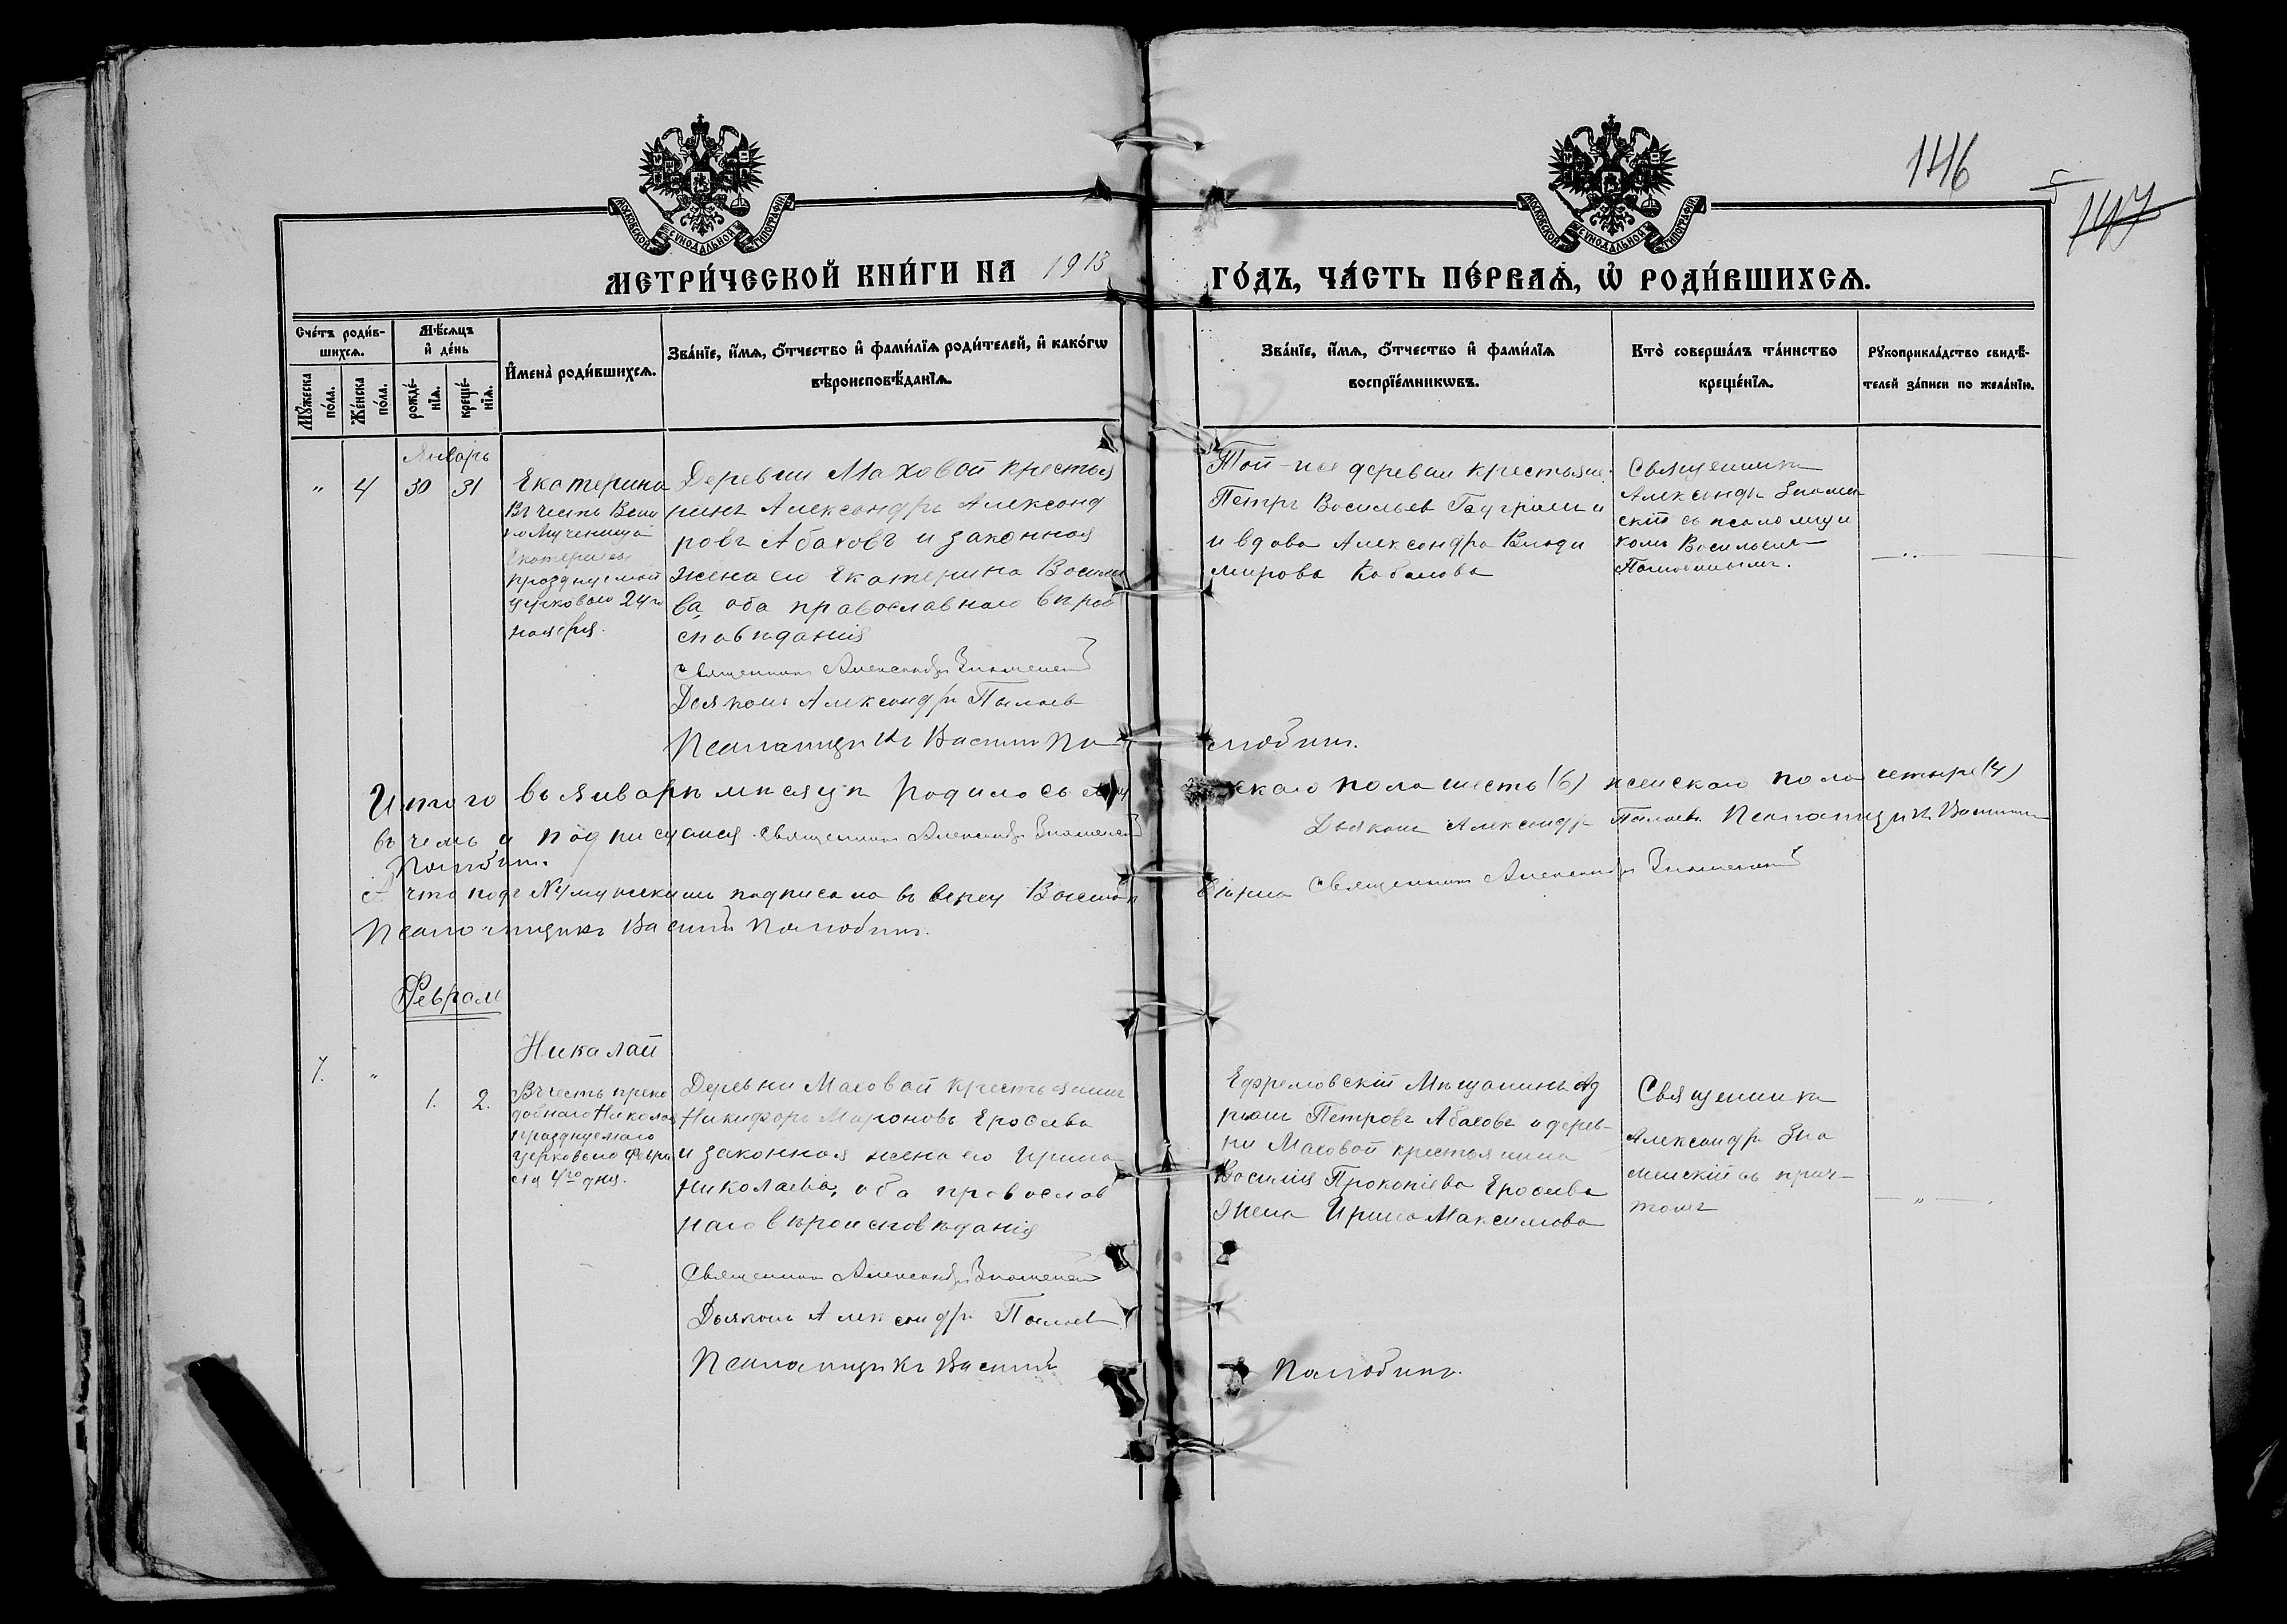 146
147
МОСКОВСКОЙ СѴНОДАЛЬНОЙ ТИПОГРАФІИ
МОСКОВСКОЙ СѴНОДАЛЬНОЙ ТИПОГРАФІИ
МЕТРИ́ЧЕСКОЙ КНИ́ГИ НА 1913 ГО́ДЪ, ЧА́СТЬ ПЕ́РВАѦ, Ѡ҆ РОДИ́ВШИХСѦ.
Сче́тъ роди́в-
шихсѧ.
Мѣ́сѧцъ
и҆ де́нь
Мꙋ́жеска
по́ла.
Же́нска
по́ла.
рожде́-
нїѧ.
креще́-
нїѧ.
И҆мена̀ роди́вшихсѧ.
Зва́нїе, и҆́мѧ, ѻ҆́тчество и҆ фами́лїѧ роди́телей, и҆ како́гѡ
вѣроисповѣ́данїѧ.
Зва́нїе, и҆́мѧ, ѻ҆́тчество и҆ фами́лїѧ
воспрїе́мникѡвъ.
Кто̀ соверша́лъ та́инство
креще́нїѧ.
Рꙋкоприкла́дство свидѣ́-
телей за́писи по жела́нїю.
Январь
" 4 30 31
Екатерина
Въ честь Вели
комученицы
Екатерины
празднуемой
церковью 24го
ноября.
Деревни Маховой крестья
нинъ Александръ Александ
ровъ Абаховъ и законная
жена его Екатерина Василье
ва, оба православнаго вѣрои
сповѣданія
Священникъ Александръ Знаменскій
Дьяконъ Александръ
Псаломщикъ Василій
Той-же деревни крестьяни
Петръ Васильев
и вдова Александра Влади
мирова
Священникъ
Александръ Знамен
скій съ псаломщи
комъ Василіемъ
Итого въ Январѣ мѣсяцѣ родилось мужескаго пола шесть (6) женскаго пола четыре (4)
въ чемъ и подписуемся. Священникъ Александръ Знаменскій Дьяконъ Александръ Псаломщикъ Василій
А что подъ № мужескимъ подписано въ верху Священникъ Александръ Знаменскій
Псаломщикъ Василій
Февраль
7. " 1. 2.
Николай
Въ честь препо
добнаго Николая
празднуемаго
церковью Февра
ля 4го дня.
Деревни Маховой крестьянинъ
Никифоръ Мироновъ Еросевъ
и законная жена его Ирина
Николаева, оба православ
наго вѣроисповѣданія
Священникъ Александръ Знаменскій
Дьяконъ Александръ
Псаломщикъ Василій
Ефремовскій Мѣщанинъ Ад
ріанъ Петровъ Абаховъ и дерев-
ни Маховой крестьянина
Василія Прокопіева Еросева
жена Ирина Максимова
Священникъ
Александръ Зна
менскій съ прич-
томъ